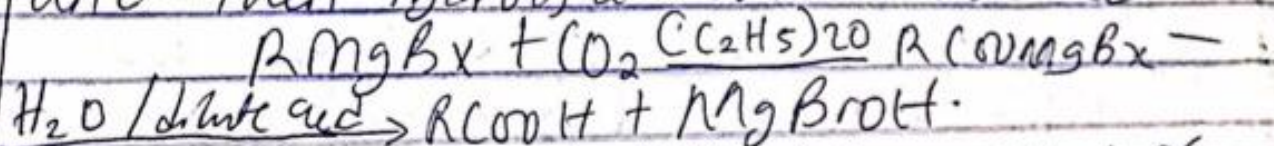 RMgBr + CO₂ (C₂H₅)₂O RCOOMgBr —
H₂O / dilute acid → RCOOH + MgBrOH.